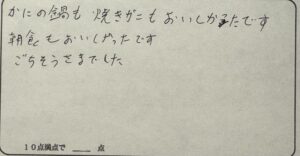 かにの鍋も焼きがにもおいしかったです
朝食もおいしかったです
ごちそうさまでした
10点満点で ____ 点